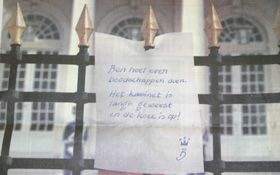 Ben heel even
boodschappen doen.
Het kabinet is
langs geweest
en de koek is op!
B